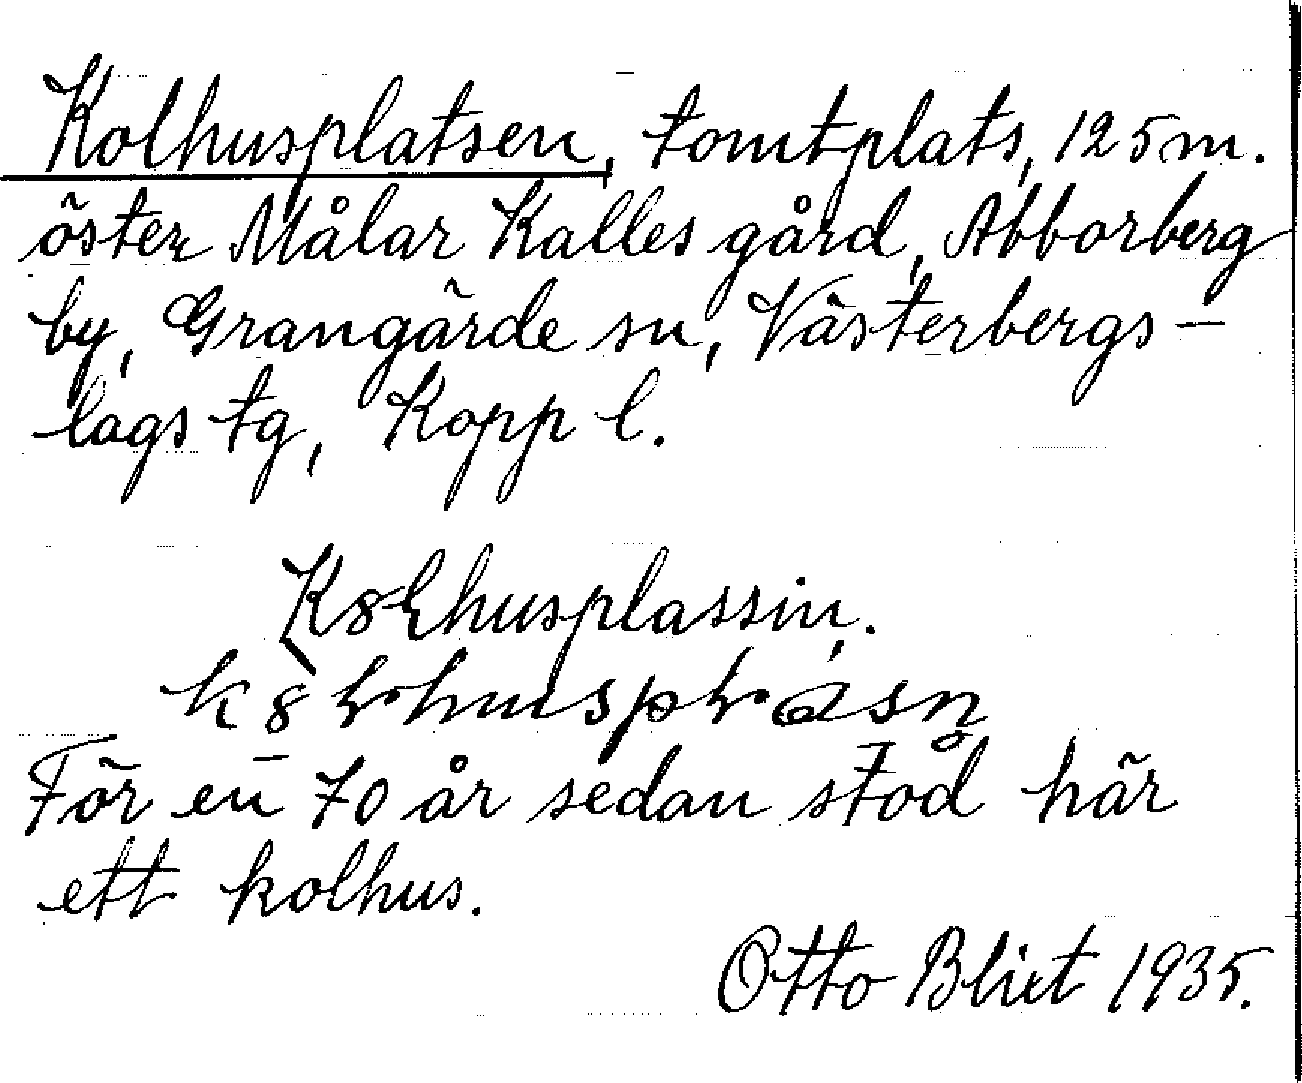 Kolhusplatsen, tomtplats, 125 m.
öster Målar Kalles gård, Abborberg
by, Grangärde sn, Västerbergs-
lags tg, Kopp l.
Kȣlhusplassin.
För en 70 år sedan stod här
ett kolhus.
Otto Blixt 1935.